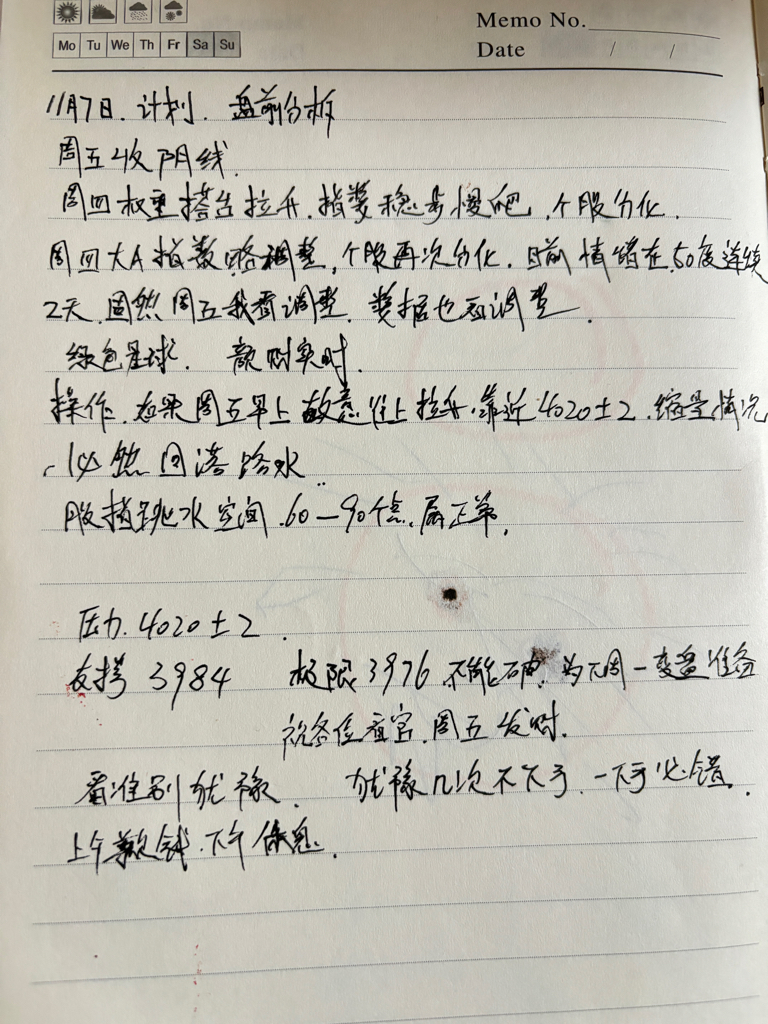 Memo No.
Mo Tu We Th Fr Sa Su
Date / /
11月7日. 计划. 盘前分析
周五收阴线.
周四权重搭台拉升. 指数稳步慢爬, 个股分化.
周四大A指数略调整, 个股再次分化. 目前情绪在.50度连续
2天. 固然周五我看调整. 数据也面调整.
绿色星球. 时.
操作. 如果周五早上故意往上拉升. 靠近4020±2. 缩量情况
. 必然回落跳水
股指跳水空间.60—90个点. 属正常.
压力. 4020±2.
支撑 3984 极限3976 不能破. 为下周一变盘准备
祝各位看官. 周五发财.
看准别犹豫. 犹豫几次不下手. 一下手必错.
上午 钱. 下午休息.